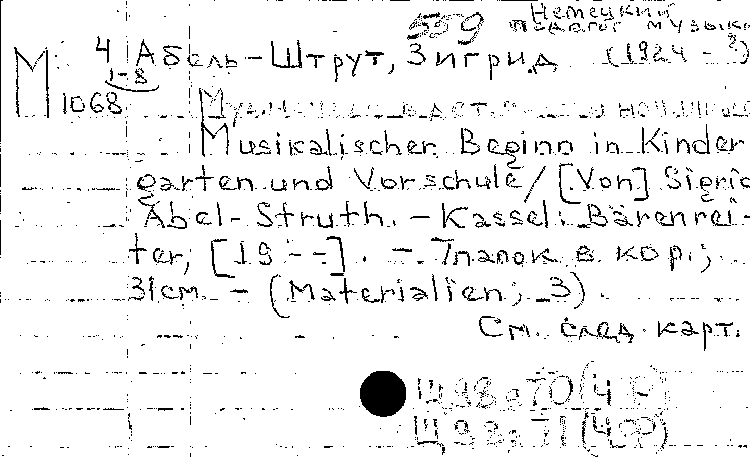 559 Немецкий
педагог музыки
4 Абель-Штрут, Зигрид (1924 - ?)
1-8
М 1068
Musikalischer Beginn in Kinder
garten und Vorschule / [Von] Sigrid
Abel-Struth. - Kassel: Bärenrei-
ter, [19 - -]. - 7 папок в кор.;
31 см. - (Materialien; 3).
См. след. карт.